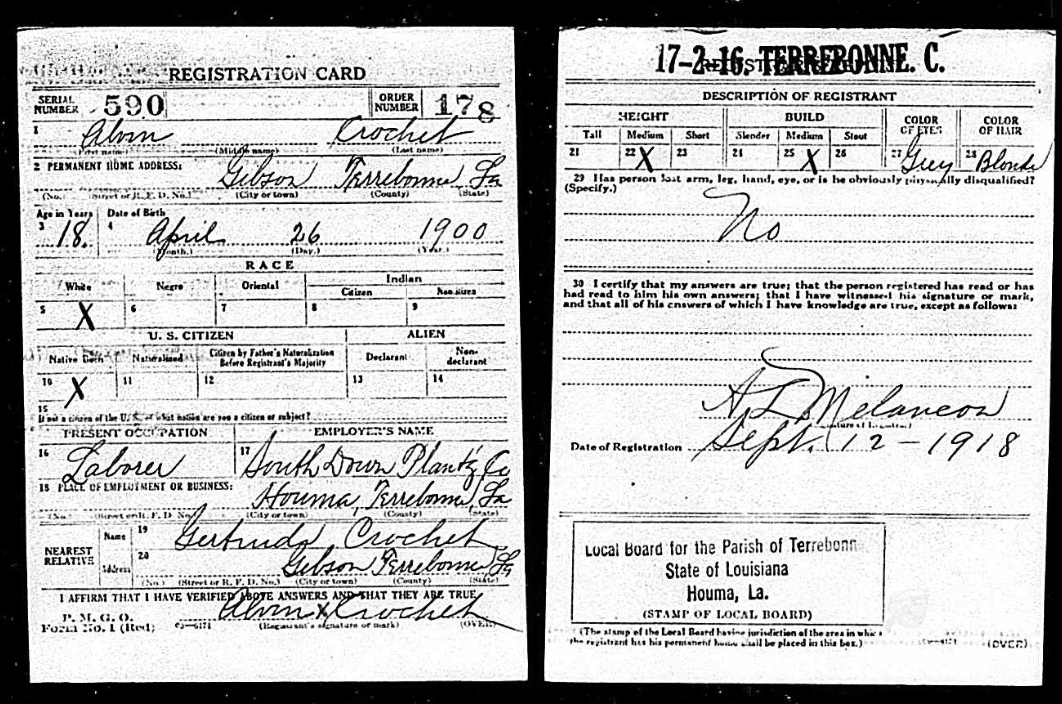 REGISTRATION CARD
SERIAL NUMBER 590 ORDER NUMBER 178
1 Alvin Crochet
(First name) (Middle name) (Last name)
2 PERMANENT HOME ADDRESS:
Gibson Terrebonne La
(No.) (Street or R. F. D. No.) (City or town) (County) (State)
Age in Years Date of Birth
3 18 4 April 26 1900
(Month.) (Day.) (Year.)
RACE
White Negro Oriental Indian
Citizen Noncitizen
5 X 6 7 8 9
U. S. CITIZEN ALIEN
Native Born Naturalized Citizen by Father's Naturalization Before Registrant's Majority Declarant Non-declarant
10 X 11 12 13 14
15
If not a citizen of the U. S., of what nation are you a citizen or subject?
PRESENT OCCUPATION EMPLOYER'S NAME
16 Laborer 17 South Down Plantg Co
18 PLACE OF EMPLOYMENT OR BUSINESS:
Houma, Terrebonne, La
(No.) (Street or R. F. D. No.) (City or town) (County) (State)
NEAREST RELATIVE
Name 19 Gertrude Crochet
Address 20 Gibson Terrebonne La
(No.) (Street or R. F. D. No.) (City or town) (County) (State)
I AFFIRM THAT I HAVE VERIFIED ABOVE ANSWERS AND THAT THEY ARE TRUE
P. M. G. O.
Form No. 1 (Red) Alvin x Crochet
(Registrant's signature or mark) (OVER)
17-2-16. TERREBONNE. C.
DESCRIPTION OF REGISTRANT
HEIGHT BUILD COLOR OF EYES COLOR OF HAIR
Tall Medium Short Slender Medium Stout
21 22 X 23 24 25 X 26 27 Grey 28 Blonde
29 Has person lost arm, leg, hand, eye, or is he obviously physically disqualified?
(Specify.)
No
30 I certify that my answers are true; that the person registered has read or has
had read to him his own answers; that I have witnessed his signature or mark,
and that all of his answers of which I have knowledge are true, except as follows:
A L Melancon
Date of Registration Sept. 12-1918
Local Board for the Parish of Terrebonn
State of Louisiana
Houma, La.
(STAMP OF LOCAL BOARD)
(The stamp of the Local Board having jurisdiction of the area in which
the registrant has his permanent home shall be placed in this box.)
(OVER)